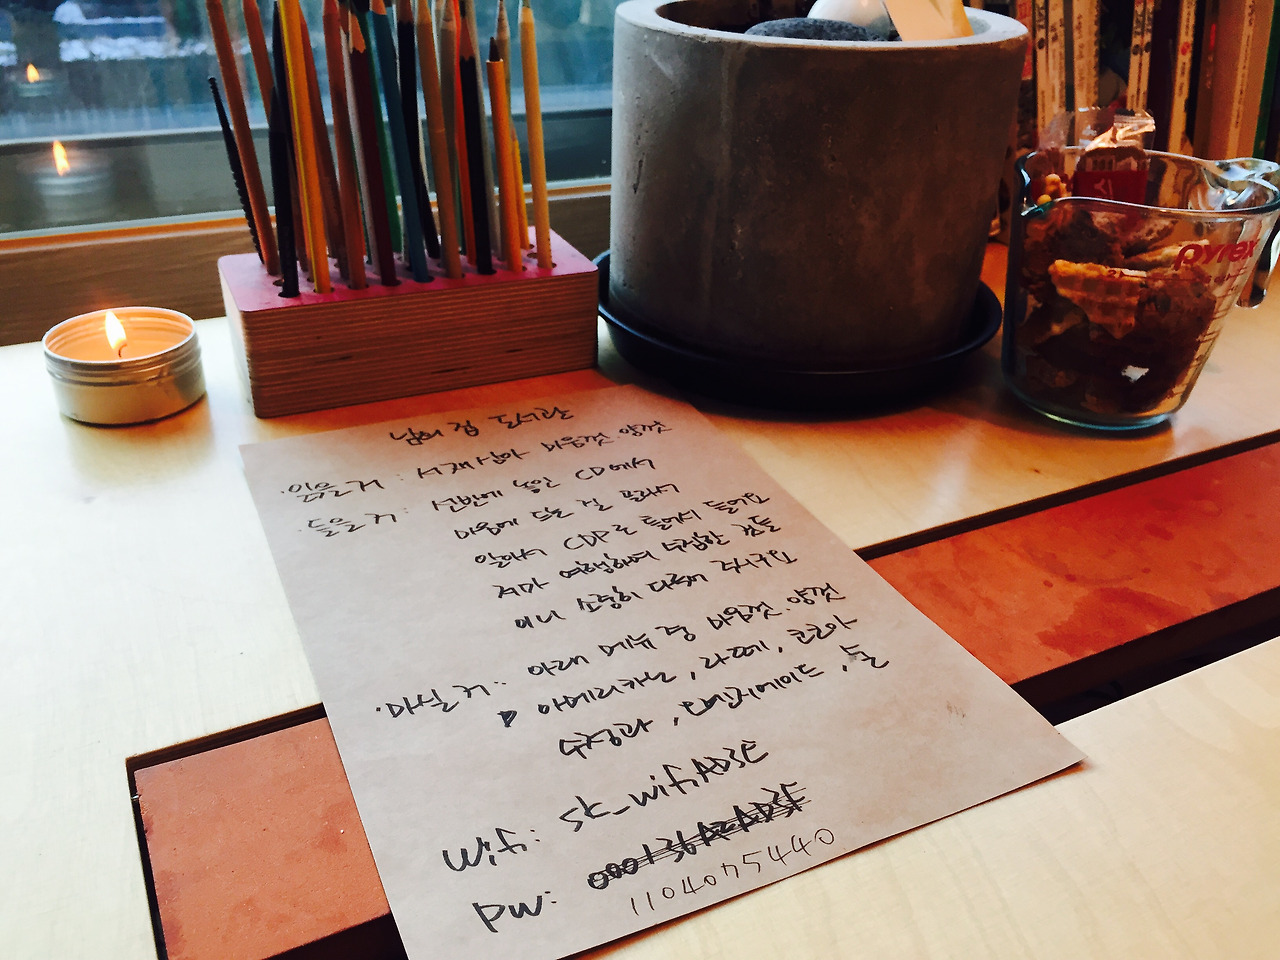 남의 집 도서관
·읽을거: 서재삼아 마음껏. 양껏
·들을거: 선반에 놓인 CD에서
마음에 드는 걸 골라서
알아서 CDP로 틀어서 들어요
저마 여행하며 수집한 것들
이니 소중히 다뤄 주시구요
·마실거: 아래 메뉴 중 마음껏. 양껏
아메리카노, 라떼, 코코아
수정과, 오렌지에이드, 물
Wifi: SK_WifiAD3E
PW: 000136A2AD3F
1104075440
pyrex